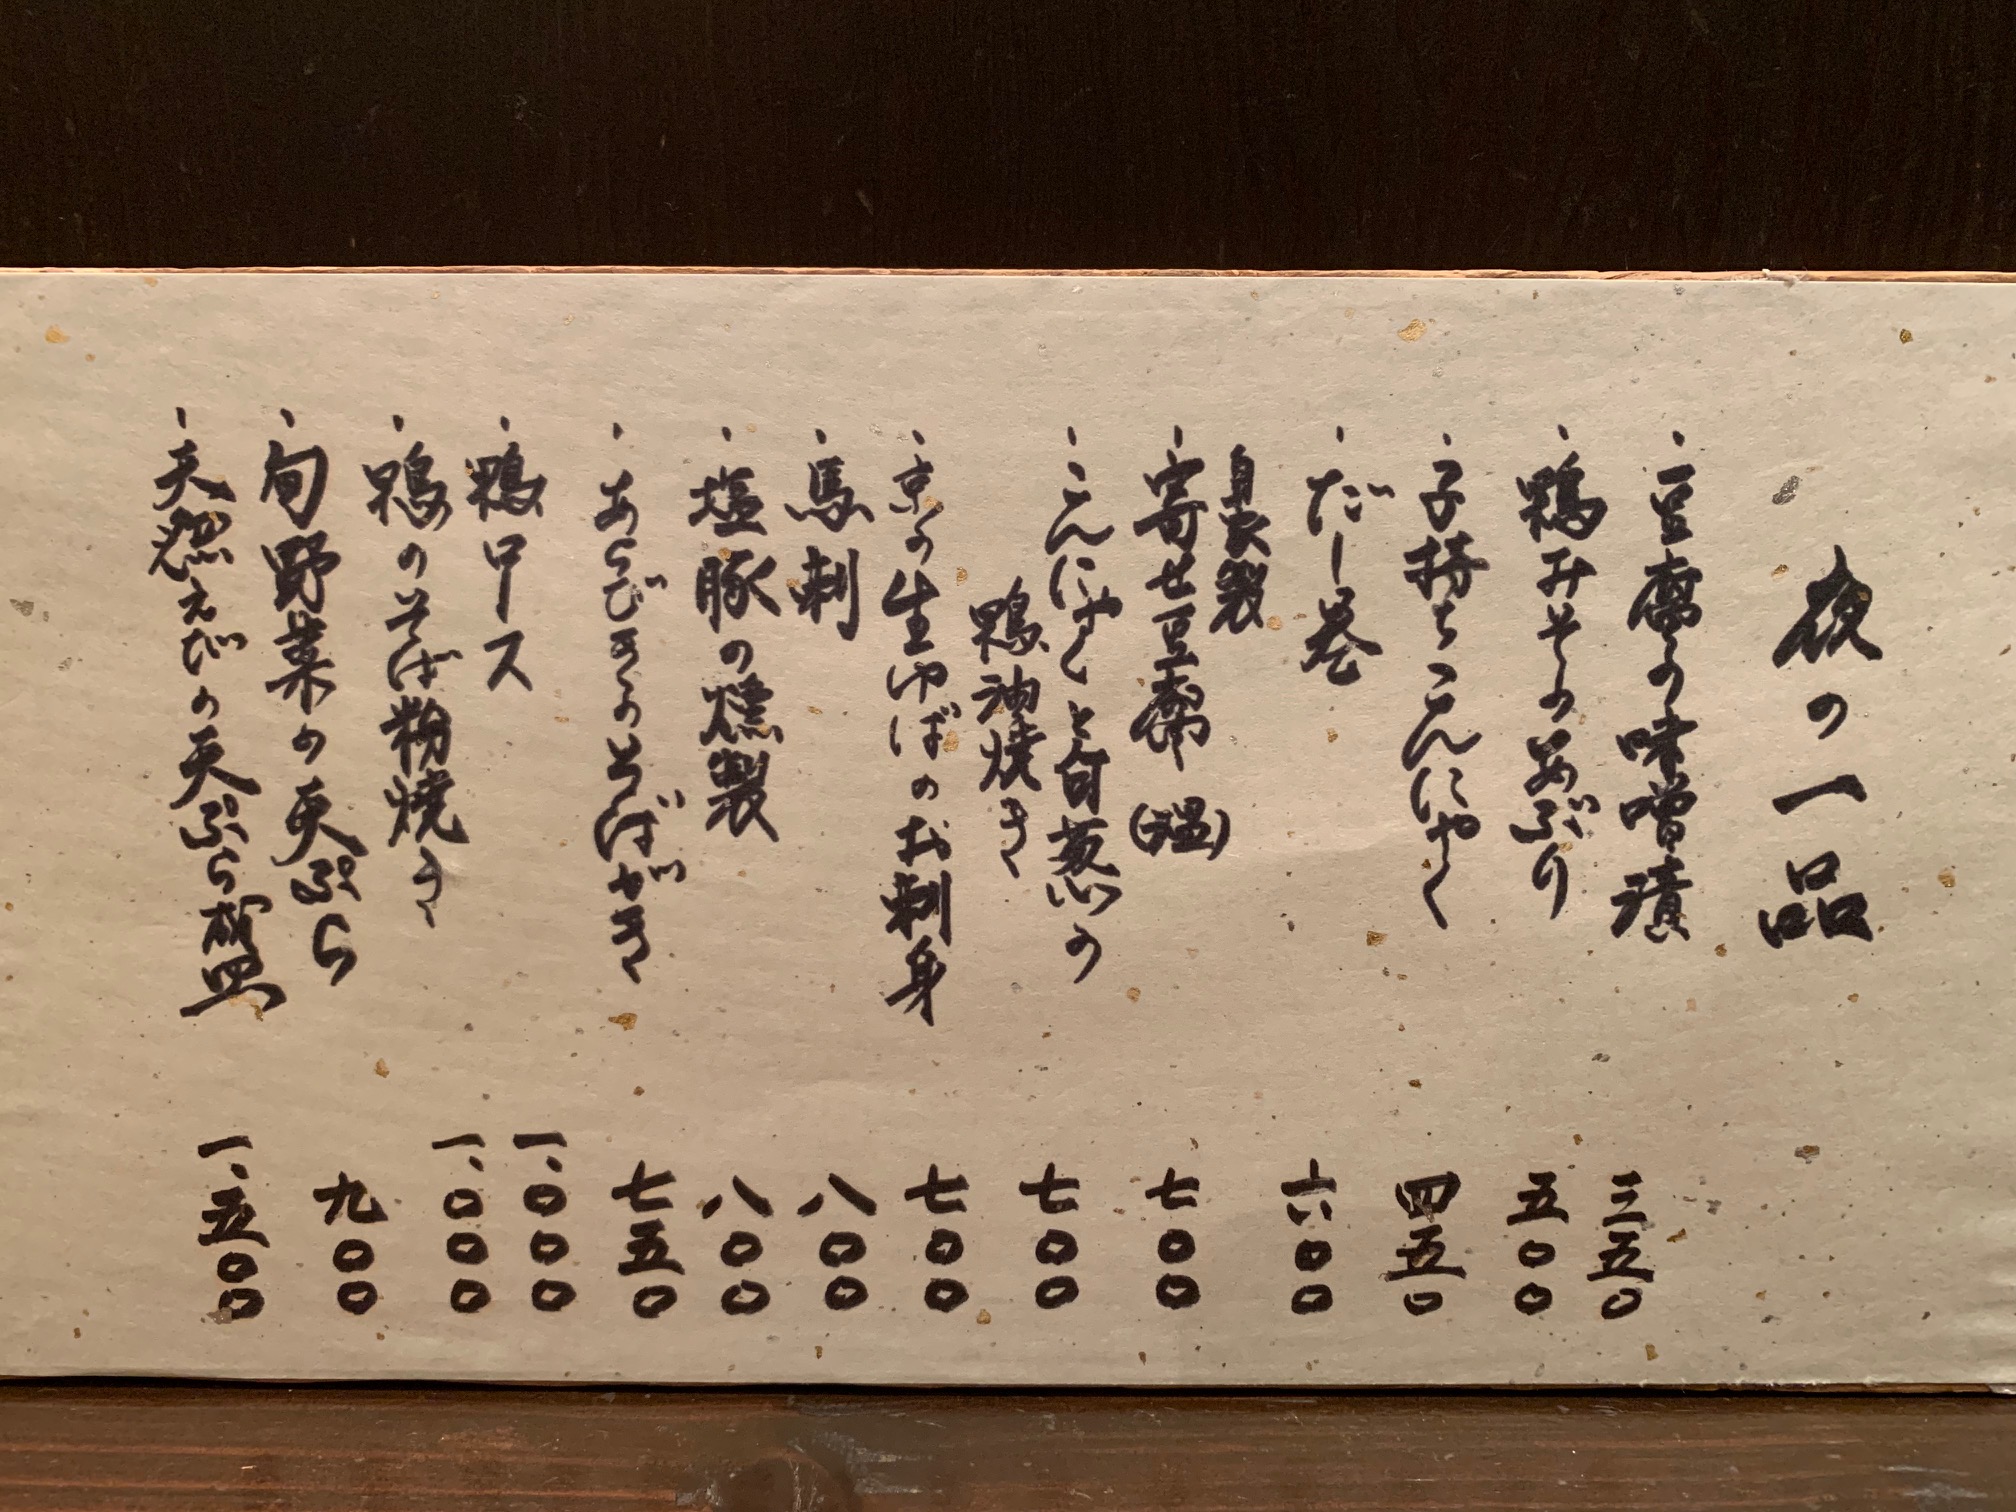 夜の一品
、豆腐の味噌漬 三五〇
、鴨みそのあぶり 五〇〇
、子持ちこんにゃく 四五〇
、だし巻 六〇〇
自家製
、寄せ豆腐(温) 七〇〇
、こんにゃくと白葱の
鴨油焼き 七〇〇
、京の生ゆばのお刺身 七〇〇
、馬刺 八〇〇
、塩豚の燻製 八〇〇
、あらびきのそばがき 七五〇
、鴨ロース 一、〇〇〇
、鴨のそば粉焼き 一、〇〇〇
、旬野菜の天ぷら 九〇〇
、天然えびの天ぷら盛 一、五〇〇